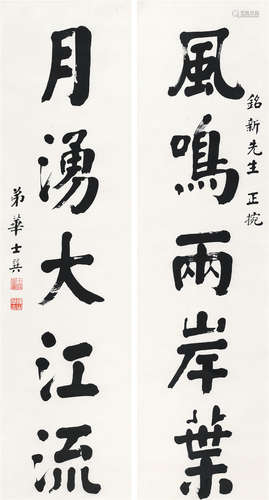 銘新先生正捥
風鳴兩岸葉
月湧大江流
弟華士巽